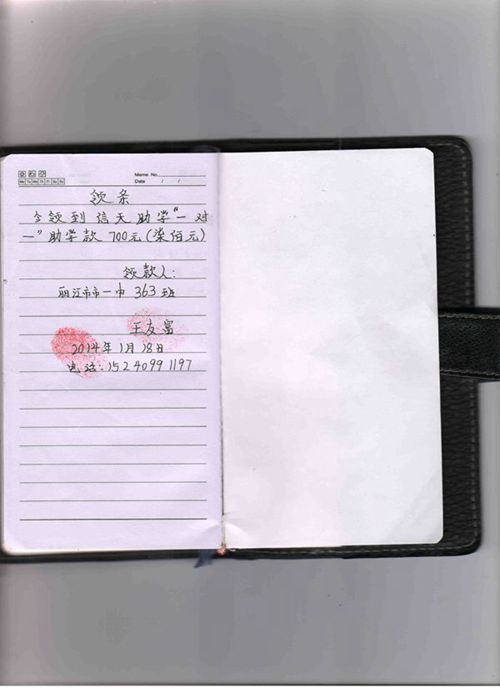 Memo No.
Mo Tu We Th Fr Sa Su
Date / /
领条
今领到信天助学“一对
一”助学款700元(柒佰元)
领款人:
丽江市市一中363班
王友富
2014年1月18日
电话:15240991197